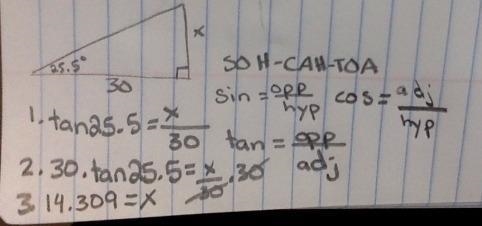 x
25.5°
30
SOH-CAH-TOA
sin = opp/hyp cos = adj/hyp
tan = opp/adj
1. tan25.5 = x/30
2. 30. tan25.5 = x/30 . 30
3 14.309 = x